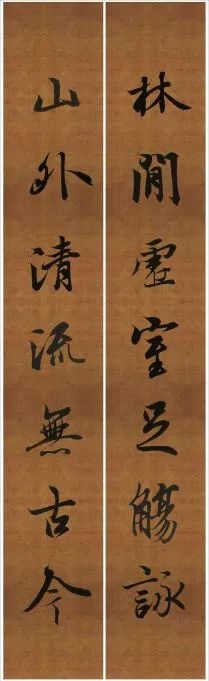 林閒虛室足觴詠
山外清流無古今